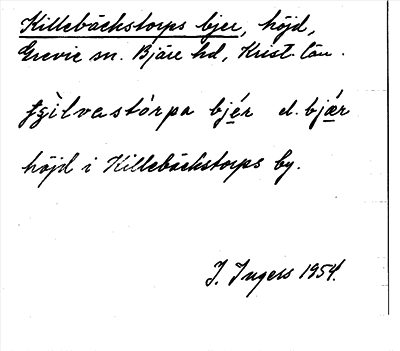 Killebäckstorps bjer, höjd,
Grevie sn. Bjäre hd, Krist. län.
bjér el. bjǽr
höjd i Killebäckstorps by.
I. Ingers 1954.